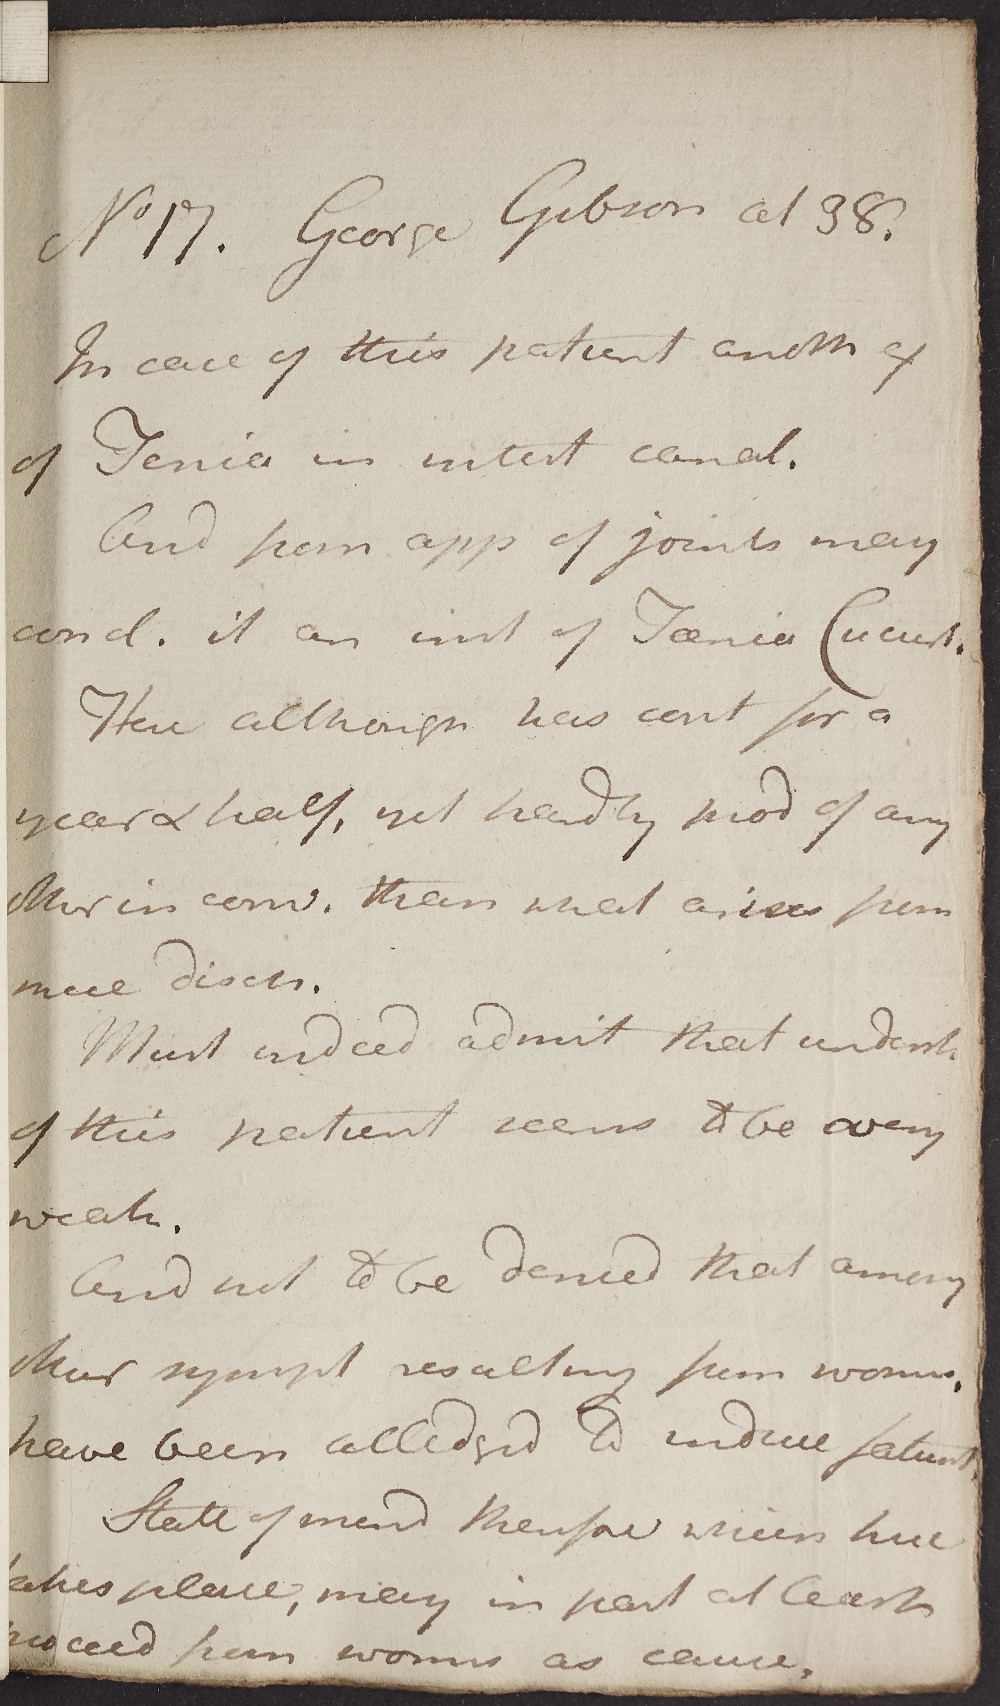 No 17. George Gibson aet 38.
In case of this patient anoth ex
of Tenia in intest canal.
And from app of joints may
concl. it an inst of Taenia Cucurb.
Here although has cont for a
year & half, yet hardly prod of any
other in conv. than what arises from
mere disch.
Must indeed admit that underst
of this patient seems to be very
weak.
And not to be denied that among
other sympt resulting from worms,
have been alledged to induce fatuit.
State of mind therefore which here
takes place, may in part at least
proceed from worms as cause.